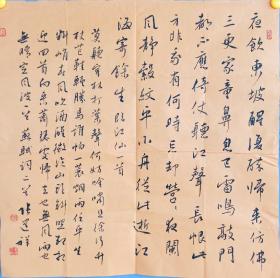 夜飲東坡醒復醉歸來仿佛
三更家童鼻息已雷鳴敲門
都不應倚杖聽江聲長恨此
身非我有何時忘却營營夜闌
風静縠紋平小舟從此逝江
海寄餘生 臨江仙一首
莫聽穿林打葉聲何妨吟嘯且徐行竹
杖芒鞋輕勝馬誰怕一蓑烟雨任平生
料峭春風吹酒醒微冷山頭斜照却相
迎回首向來蕭瑟處歸去也無風雨也
無晴 定風波一首 蘇軾詞二首